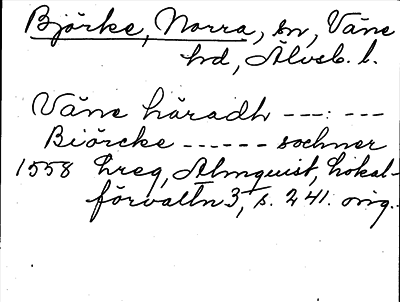 Björke, Norra, sn, Väne
hd, Älvsb. l.
Väne häradh ---:---
Biörcke ------ sochner
1558 hreg, Almquist, Lokal-
förvaltn 3, s. 241. orig.